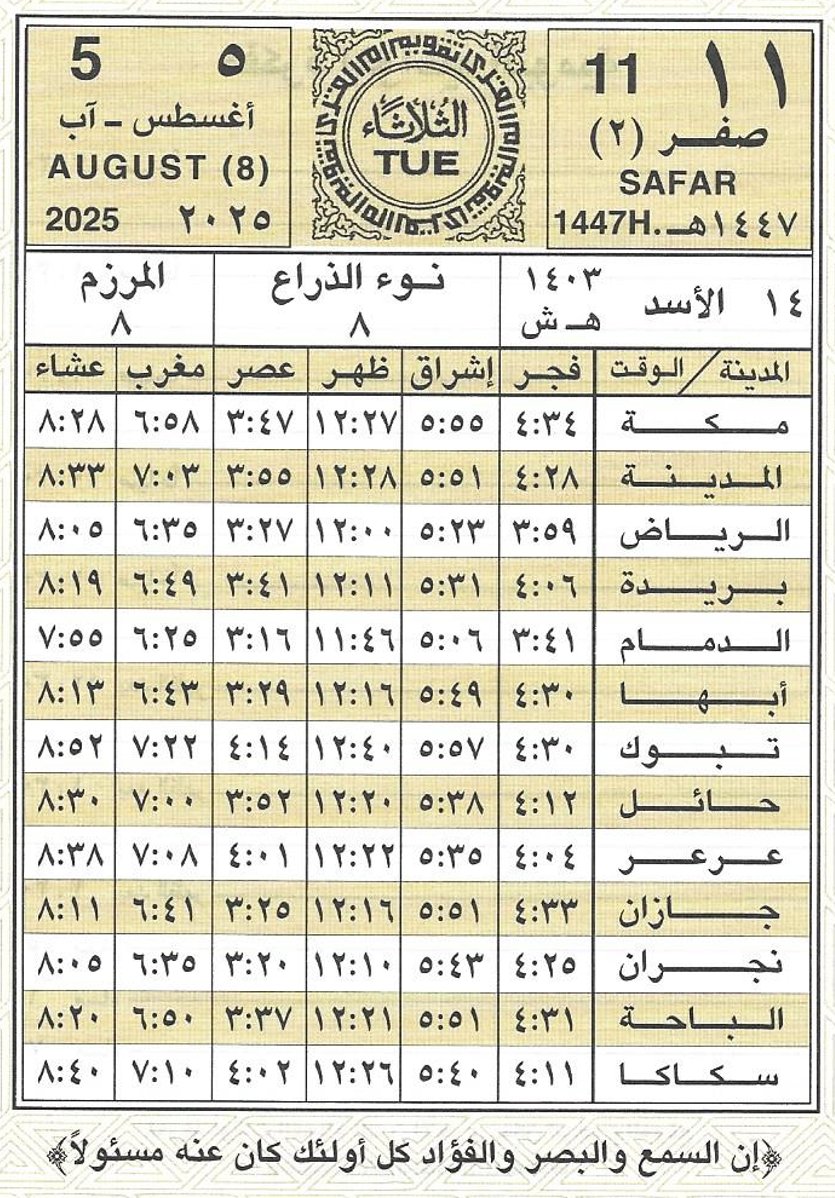 ١١ 11
صفر (٢)
SAFAR
1447H. ١٤٤٧هـ
الثلاثاء
TUE
5 ٥
أغسطس - آب
AUGUST (8)
2025 ٢٠٢٥
١٤ الأسد ١٤٠٣ هـ ش نوء الذراع ٨ المرزم ٨
المدينة / الوقت فجر إشراق ظهر عصر مغرب عشاء
مكة ٤:٣٤ ٥:٥٥ ١٢:٢٧ ٣:٤٧ ٦:٥٨ ٨:٢٨
المدينة ٤:٢٨ ٥:٥١ ١٢:٢٨ ٣:٥٥ ٧:٠٣ ٨:٣٣
الرياض ٣:٥٩ ٥:٢٣ ١٢:٠٠ ٣:٢٧ ٦:٣٥ ٨:٠٥
بريدة ٤:٠٦ ٥:٣١ ١٢:١١ ٣:٤١ ٦:٤٩ ٨:١٩
الدمام ٣:٤١ ٥:٠٦ ١١:٤٦ ٣:١٦ ٦:٢٥ ٧:٥٥
أبها ٤:٣٠ ٥:٤٩ ١٢:١٦ ٣:٢٩ ٦:٤٣ ٨:١٣
تبوك ٤:٣٠ ٥:٥٧ ١٢:٤٠ ٤:١٤ ٧:٢٢ ٨:٥٢
حائل ٤:١٢ ٥:٣٨ ١٢:٢٠ ٣:٥٢ ٧:٠٠ ٨:٣٠
عرعر ٤:٠٤ ٥:٣٥ ١٢:٢٢ ٤:٠١ ٧:٠٨ ٨:٣٨
جازان ٤:٣٣ ٥:٥١ ١٢:١٦ ٣:٢٥ ٦:٤١ ٨:١١
نجران ٤:٢٥ ٥:٤٣ ١٢:١٠ ٣:٢٠ ٦:٣٥ ٨:٠٥
الباحة ٤:٣١ ٥:٥١ ١٢:٢١ ٣:٣٧ ٦:٥٠ ٨:٢٠
سكاكا ٤:١١ ٥:٤٠ ١٢:٢٦ ٤:٠٢ ٧:١٠ ٨:٤٠
﴿إن السمع والبصر والفؤاد كل أولئك كان عنه مسئولاً﴾